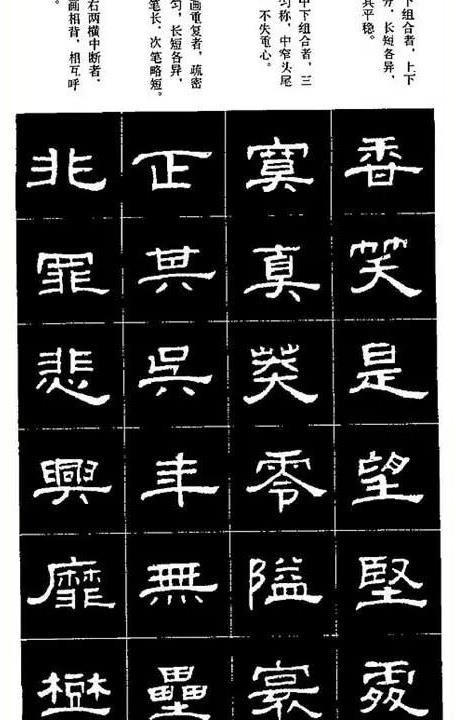 下组合者，上下
长短各异，
其平稳。
中下组合者，三
匀称，中窄头尾
不失重心。
画重复者，疏密
匀，长短各异，
笔长，次笔略短。
右两横中断者，
画相背，相互呼
香笑是望堅
寞真葵零隘
正其吳年無壘
非罪悲興靡